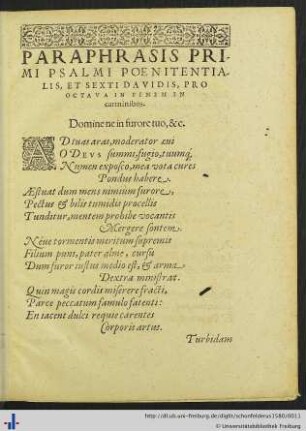 PARAPHRASIS PRI-
MI PSALMI POENITENTIA-
LIS, ET SEXTI DAVIDIS, PRO
OCTAVA IN FINEM IN
carminibus.
Domine ne in furore tuo, &c.
AD tuas aras, moderator ævi
O DEVS summi, fugio, tuumq́;
Numen exposco, mea vota cures
Pondus habere.
Æstuat dum mens nimium furore,
Pectus & bilis tumidis procellis
Tunditur, mentem prohibe vocantis
Mergere sontem.
Néve tormentis meritum supremis
Filium puni, pater alme, cursu
Dum furor iustus medio est, & arma
Dextra ministrat.
Quin magis cordis miserere fracti,
Parce peccatum famulo fatenti:
En iacent dulci requie carentes
Corporis artus.
Turbidam
http://dl.ub.uni-freiburg.de/diglit/schonfelderus1580/0011
© Universitätsbibliothek Freiburg